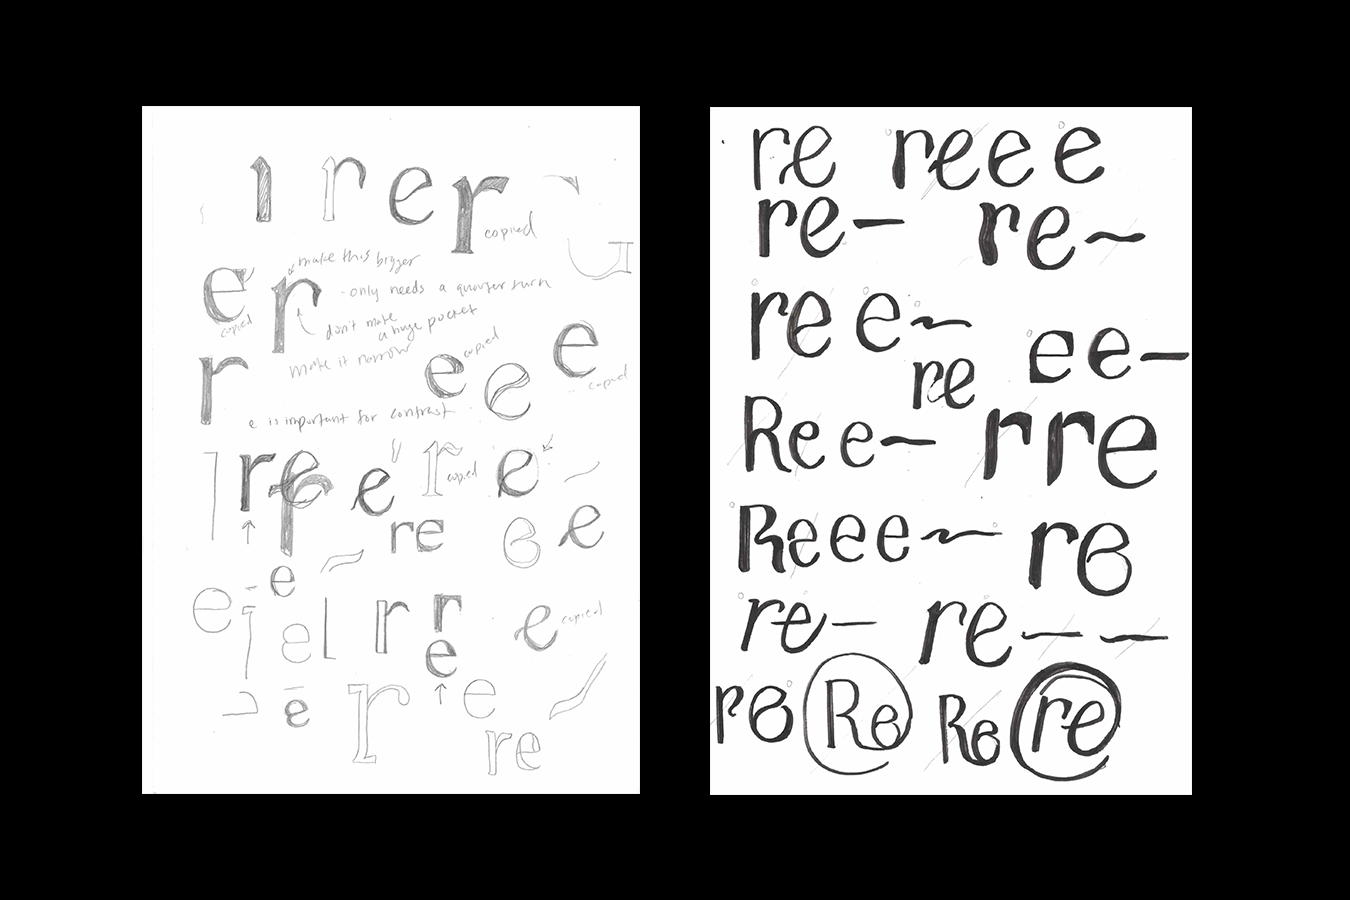 ı r e r
copied
e r
make this bigger
- only needs a quarter turn
copied
don't make
a huge pocket
make it narrow
r
e e e
copied
copied
e is important for contrast
r e e r e
copied
re e e
e
e r r e
copied
e
ē r e
re
re reee
re— re~
re e~
re
ee—
Re e~
rre
Reee~
re
re— re~~
re Re Re re